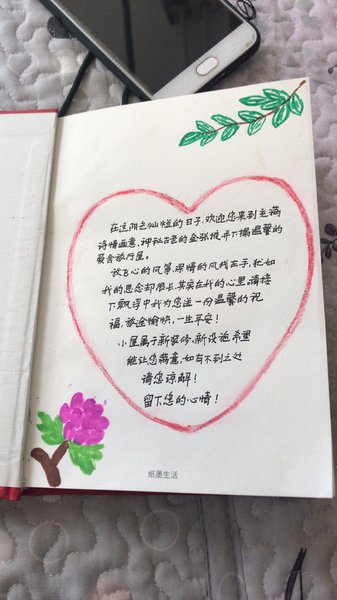 在这阳光灿烂的日子，欢迎您来到充满
诗情画意，神秘古色的金张掖，丹下揭温馨的
聚会旅行屋。
放飞心的风筝，柔情的风线在手，犹如
我的思念却很长，其实在我的心里，请接
下飘浮中我为您送一份温馨的祝
福，旅途愉快，一生平安！
小屋属于新装修，新设施希望
能让您满意，如有不到之处
请您谅解！
留下您的心情！
纸墨生活